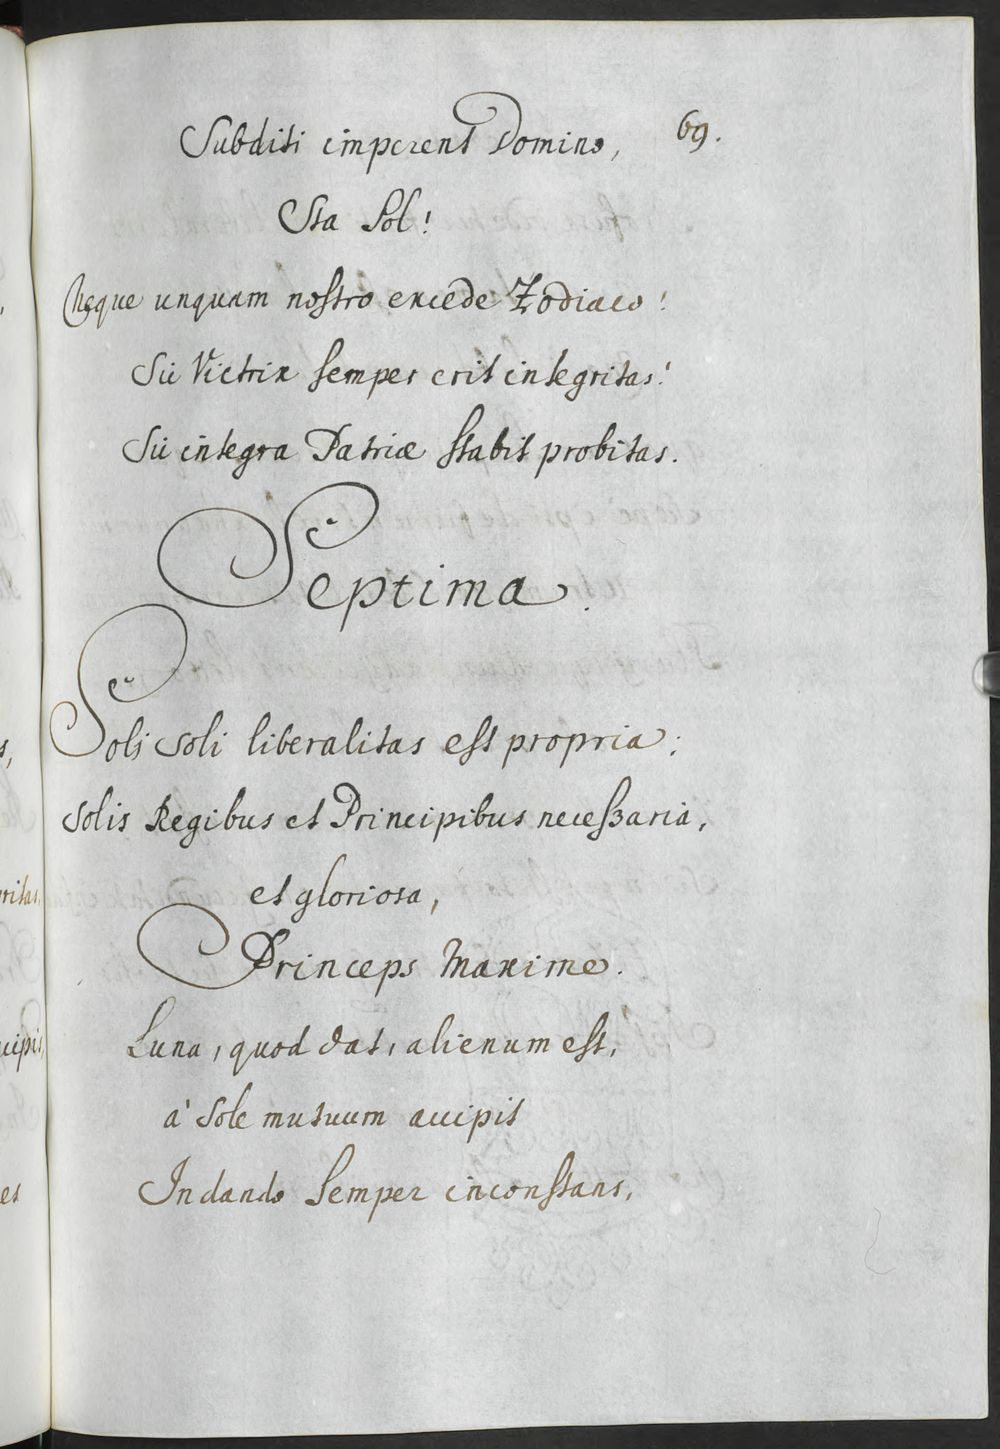 69.
Subditi imperent Domino,
Sta Sol!
Neque unquam nostro excede Zodiaco!
Sic Victrix semper erit integritas!
Sic integra Patriæ stabit probitas.
Septima.
Soli soli liberalitas est propria;
solis Regibus et Principibus necessaria,
et gloriosa,
Princeps Maxime.
Luna, quod dat, alienum est,
à Sole mutuum accipit
In dando semper inconstans,